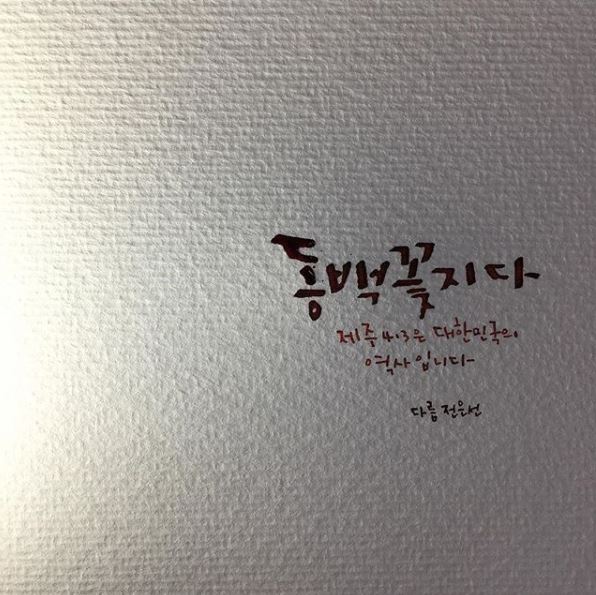 동백꽃지다
제주4.3은 대한민국의
역사입니다
다름 전은선